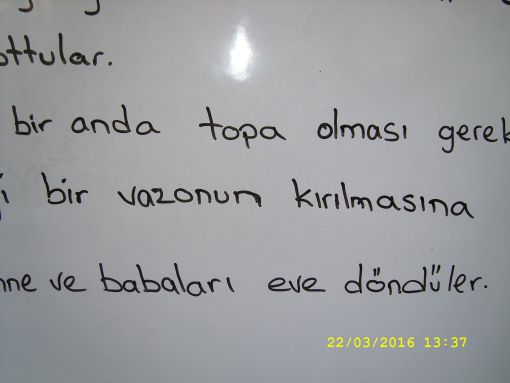 ottular.
bir anda topa olması gerek
i bir vazonun kırılmasına
nne ve babaları eve döndüler.
22/03/2016 13:37